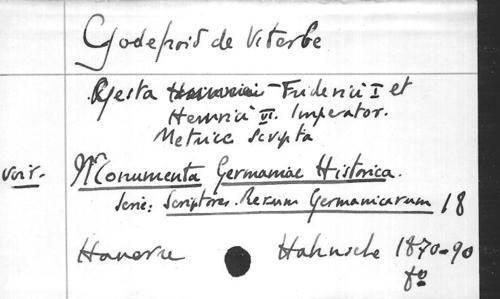 Godefroid de Viterbe
Gesta Friderici I et
Heinrici VI. Imperator.
Metrice scripta
voir. Monumenta Germaniae Historica.
Serie: Scriptores Rerum Germanicarum 18
Hanovre Hahnsche 1870-90
fo